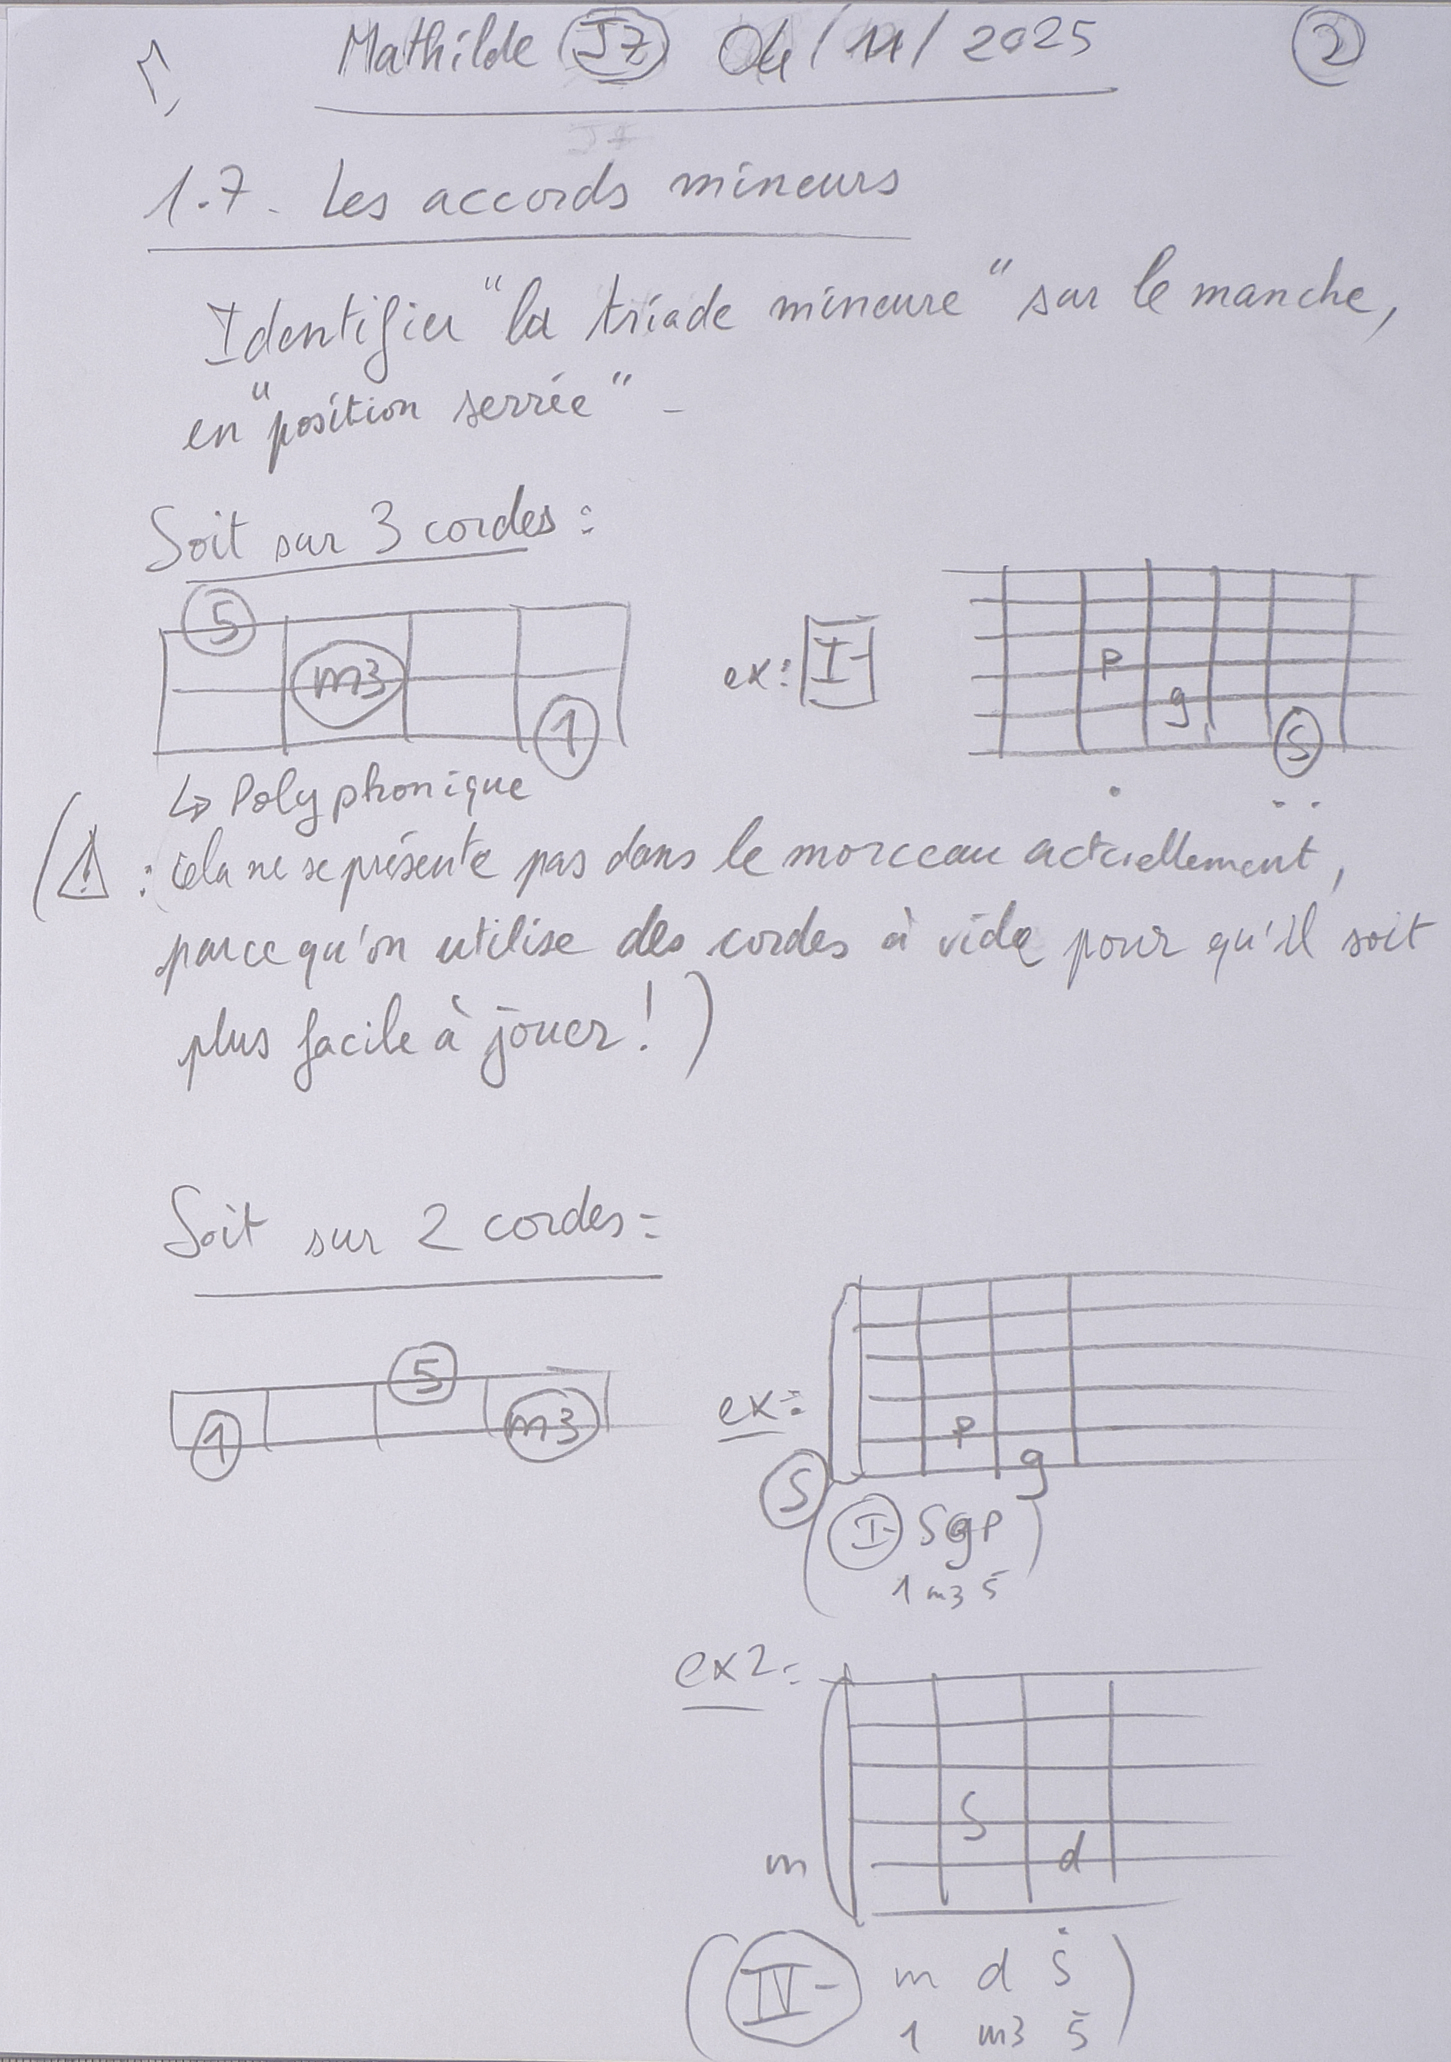 Mathilde JZ 04/11/2025 2
1.7. Les accords mineurs
Identifier "la triade mineure" sur le manche,
en "position serrée" -
Soit sur 3 cordes :
5
m3
1
ex: I-
P
g
S
↳ Polyphonique
(⚠ : cela ne se présente pas dans le morceau actuellement,
parce qu'on utilise des cordes à vide pour qu'il soit
plus facile à jouer !)
Soit sur 2 cordes :
5
1
m3
ex:
P
g
S
(I- S g P)
1 m3 5
ex2:
S
m
d
(IV- m d Ṡ)
1 m3 5